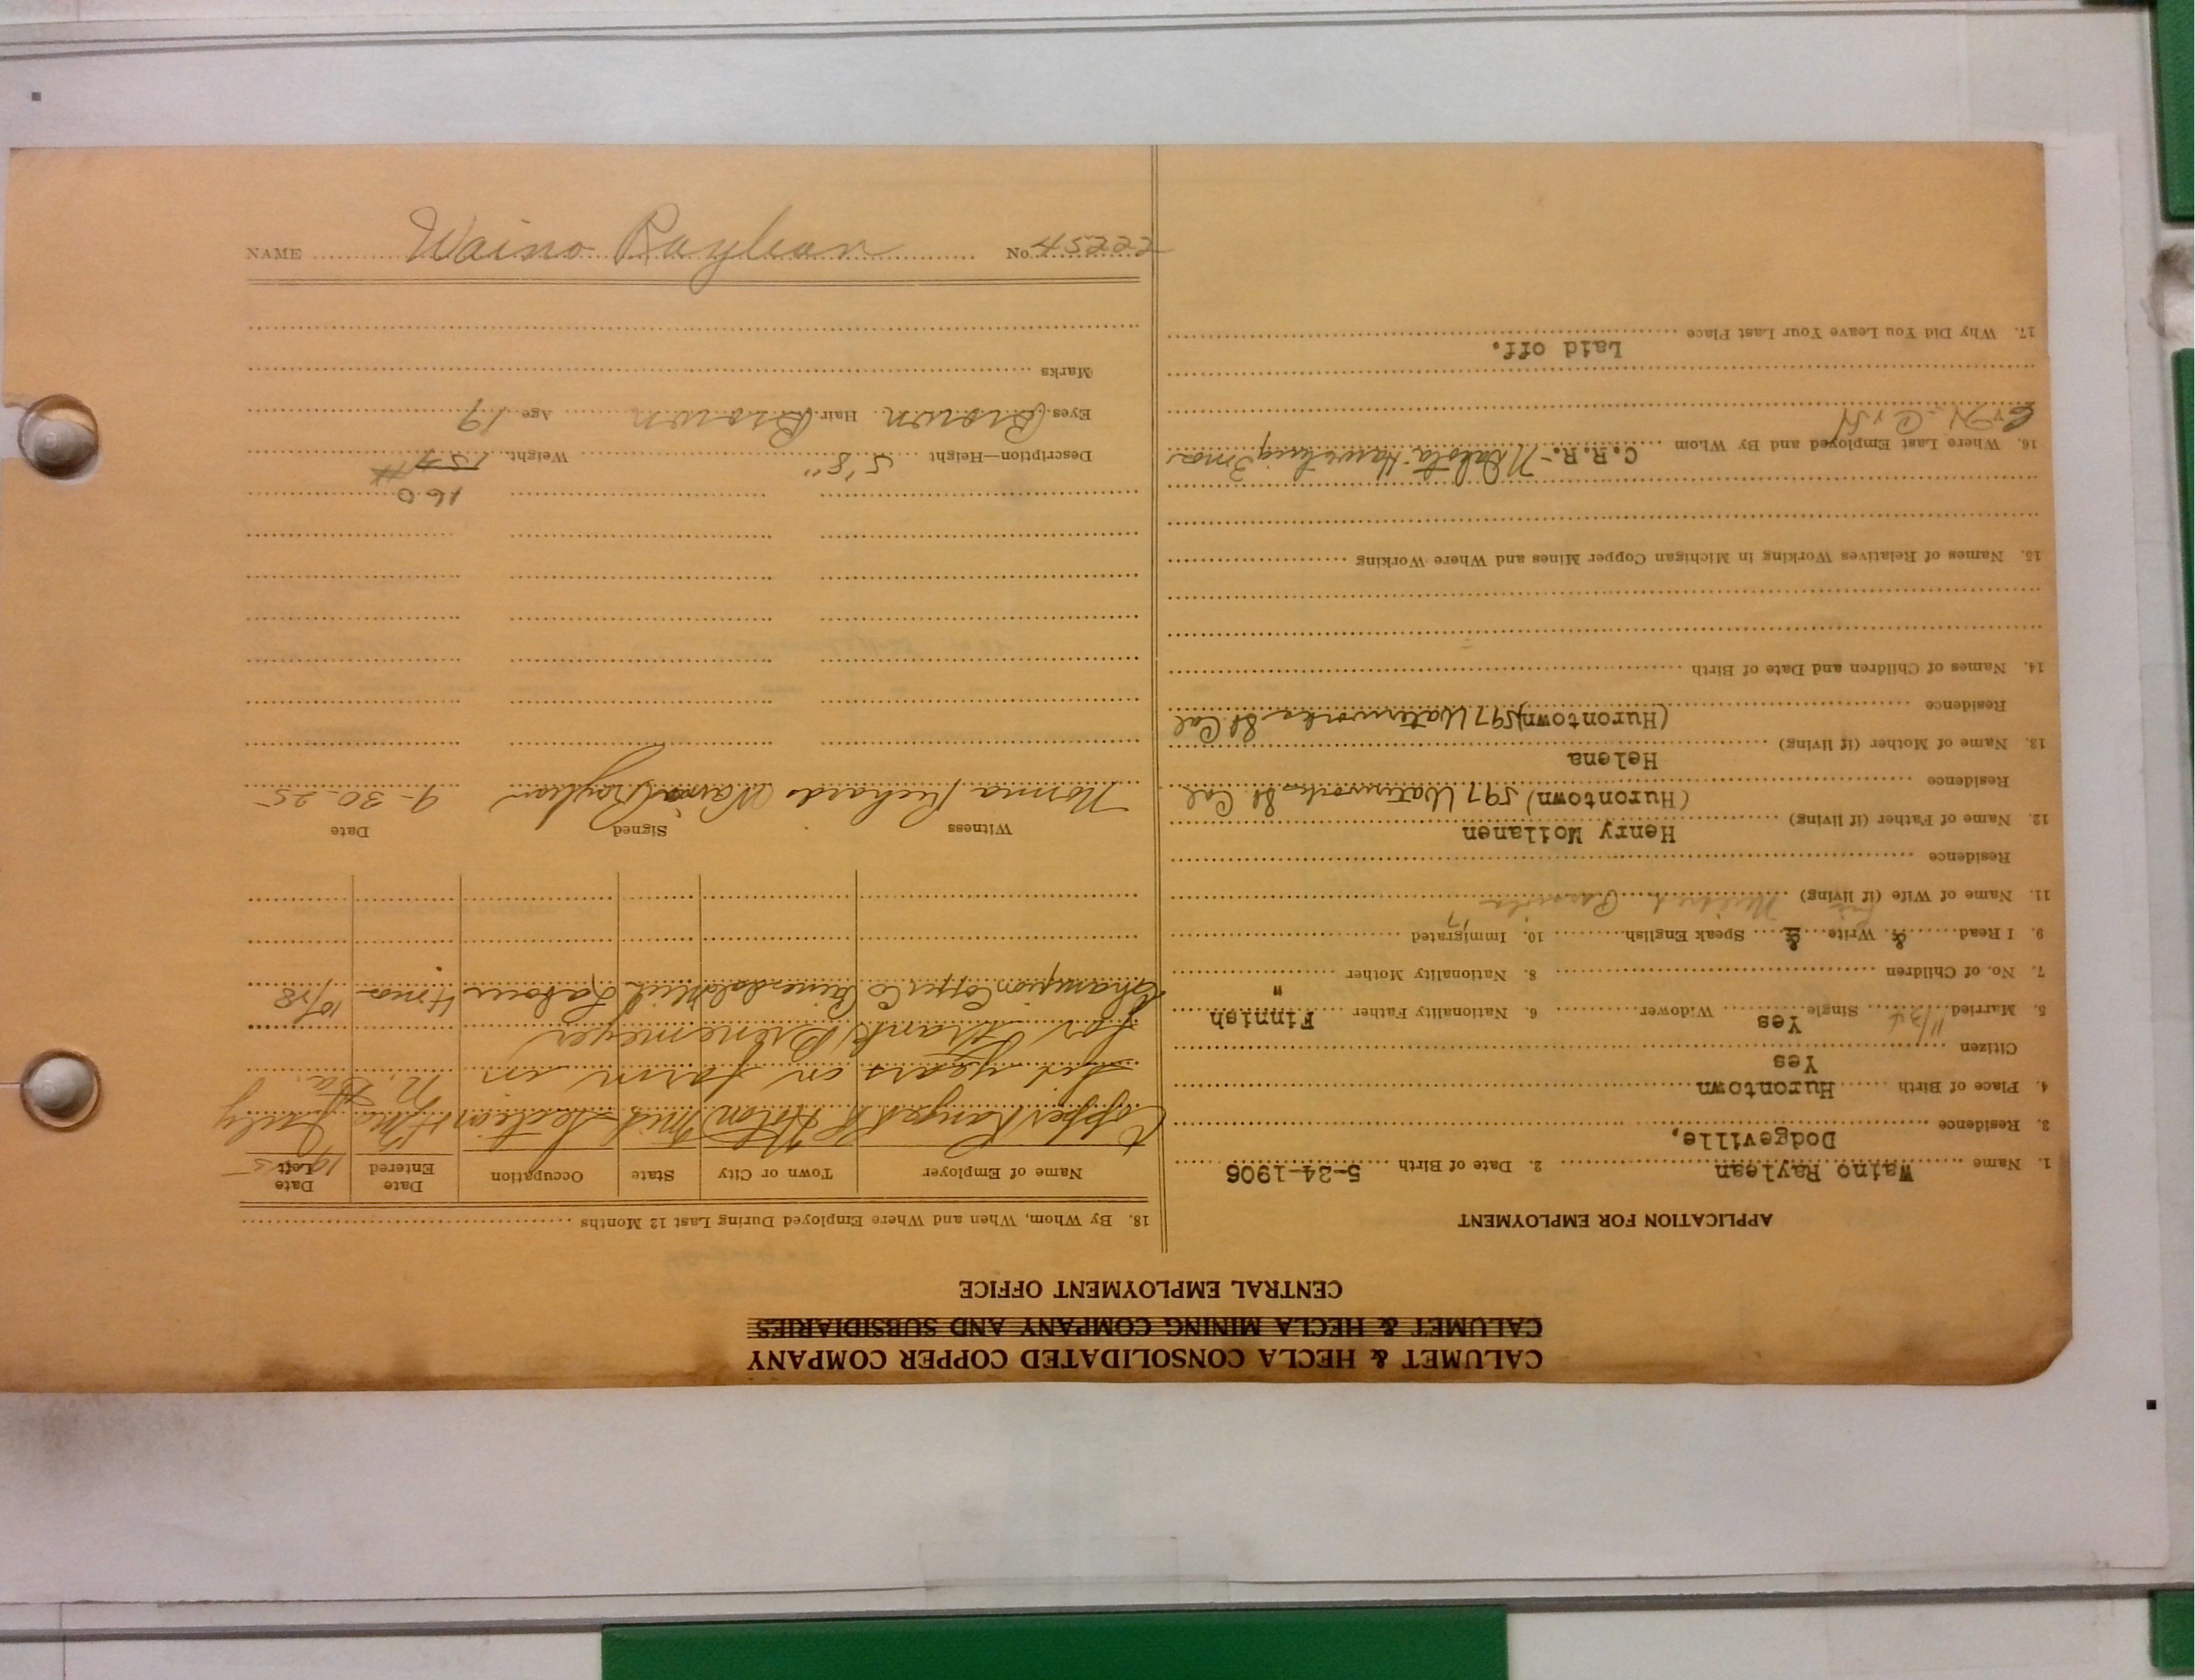 CALUMET & HECLA CONSOLIDATED COPPER COMPANY
CALUMET & HECLA MINING COMPANY AND SUBSIDIARIES
CENTRAL EMPLOYMENT OFFICE
APPLICATION FOR EMPLOYMENT
1. Name Waino Raylean 2. Date of Birth 5-24-1906
3. Residence Dodgeville,
4. Place of Birth Hurontown
Citizen Yes
5. Married 11/24 Single Yes Widower 6. Nationality Father Finnish
7. No. of Children 8. Nationality Mother "
9. I Read & Write & Speak English 10. Immigrated
11. Name of Wife (if living)
Residence
12. Name of Father (if living) Henry Moilanen
Residence (Hurontown) 597 Waterworks St Cal
13. Name of Mother (if living) Helena
Residence (Hurontown) 597 Waterworks St Cal
14. Names of Children and Date of Birth
15. Names of Relatives Working in Michigan Copper Mines and Where Working
16. Where Last Employed and By Whom C.R.R.- N Dakota Harvesting 3 mos
C & H
17. Why Did You Leave Your Last Place
Laid off.
18. By Whom, When and Where Employed During Last 12 Months
Name of Employer Town or City State Occupation Date Entered Date Left
Copper Range RR Hoton Mich Section 4 mo July 1925
years on farm in N. Da.
for Frank Brenemeyer
Champion Copper Co Painesdale Mich Labour 4 mos 10/28
Witness Signed Date
Norma Richards Waino Raylean 9-30-25
160
Description—Height 5' 8" Weight 154#
Eyes Brown Hair Brown Age 19
Marks
NAME Waino Raylean No 45222